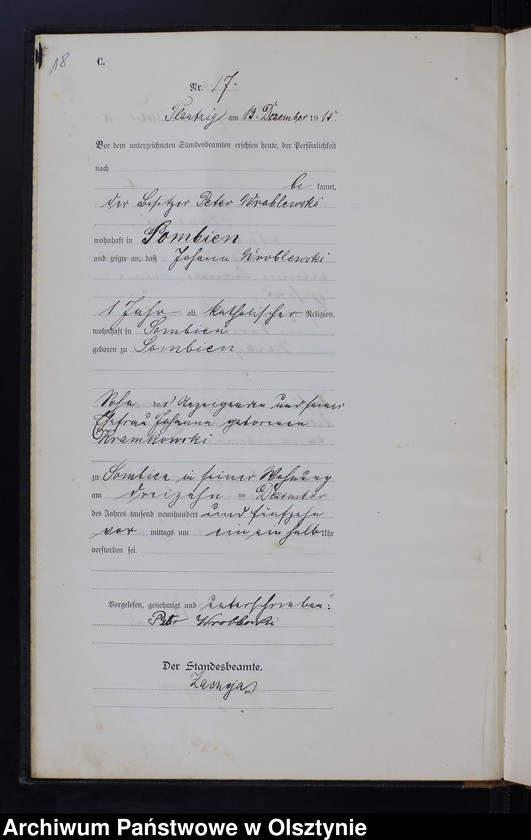 18
C.
Nr. 17.
am 13. Dezember 1915.
Vor dem unterzeichneten Standesbeamten erschien heute, der Persönlichkeit
nach
be kannt,
der Besitzer Peter Wroblewski
wohnhaft in Sombien
und zeigte an, daß Johann Wroblewski
1 Jahr alt, katholischer Religion,
wohnhaft in Sombien
geboren zu Sombien
Sohn des Anzeigenden und seiner
Ehefrau Johanna geborenen
Kramkowski
zu Sombien in seiner Wohnung
am dreizehn im Dezember
des Jahres tausend neunhundert und fünfzehn
vor mittags um ein ein halb Uhr
verstorben sei.
Vorgelesen, genehmigt und unterschrieben:
Peter Wroblewski
Der Standesbeamte.
Archiwum Państwowe w Olsztynie